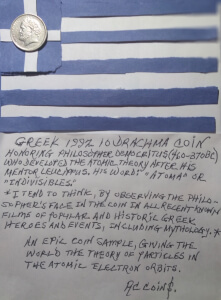 GREEK 1992 10 DRACHMA COIN
HONORING PHILOSOPHER DEMOCRITUS (460-370BC)
WHO DEVELOPED THE ATOMIC THEORY AFTER HIS
MENTOR LEUCIPPUS. HIS WORD: "ATOMA" OR
"INDIVISIBLES"
*I TEND TO THINK, BY OBSERVING THE PHILO-
SOPHER'S FACE IN THE COIN IN ALL RECENT KNOWN
FILMS OF POPULAR AND HISTORIC GREEK
HEROES AND EVENTS, INCLUDING MYTHOLOGY.*
AN EPIC COIN SAMPLE, GIVING THE
WORLD THE THEORY OF PARTICLES IN
THE ATOMIC ELECTRON ORBITS.
AC COINS.